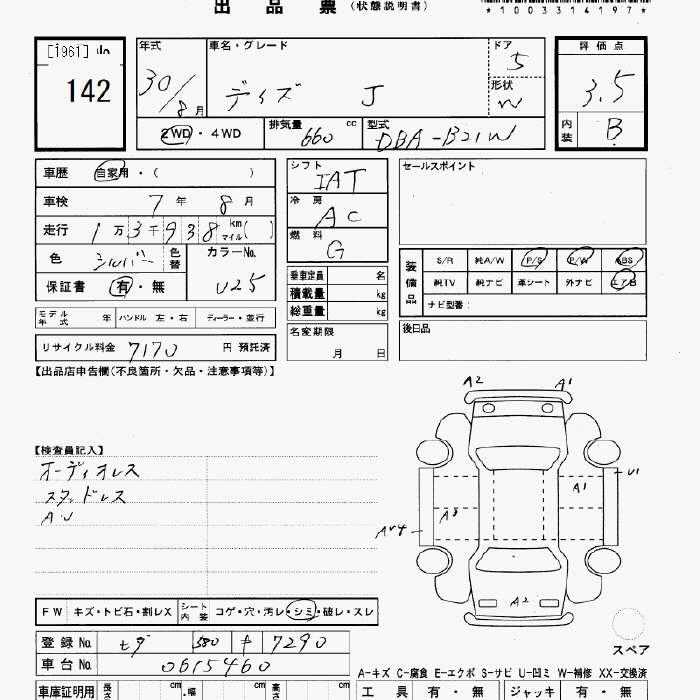 出品票（状態説明書）
*1003314197*
[1961]
142
年式 30/8月
車名・グレード デイズ J
ドア 5
形状 W
2WD・4WD
排気量 660 cc
型式 DBA-B21W
評価点 3.5
内装 B
車歴 自家用・（ ）
車検 7年 8月
走行 1万3千938 km マイル( )
色 シルバー 色替
カラーNo. U25
保証書 有・無
モデル年式 年 ハンドル 左・右 ディーラー・並行
リサイクル料金 7170 円 預託済
シフト IAT
冷房 AC
燃料 G
乗車定員 名
積載量 kg
総重量 kg
名変期限 月 日
セールスポイント
装備品 S/R 純A/W P/S P/W ABS
純TV 純ナビ 革シート 外ナビ エアB
ナビ型番：
後日品
【出品店申告欄(不良箇所・欠品・注意事項等)】
【検査員記入】
オーディオレス
スタッドレス
A.U
A2 A1
U1
A1
A3
A2
スペア
FW キズ・トビ石・割レX シート内装 コゲ・穴・汚レ・シミ・破レ・スレ
登録No. 580 7290
車台No. 0615460
A-キズ C-腐食 E-エクボ S-サビ U-凹ミ W-補修 XX-交換済
車庫証明用 長さ cm 幅 cm 高さ cm
工具 有・無 ジャッキ 有・無